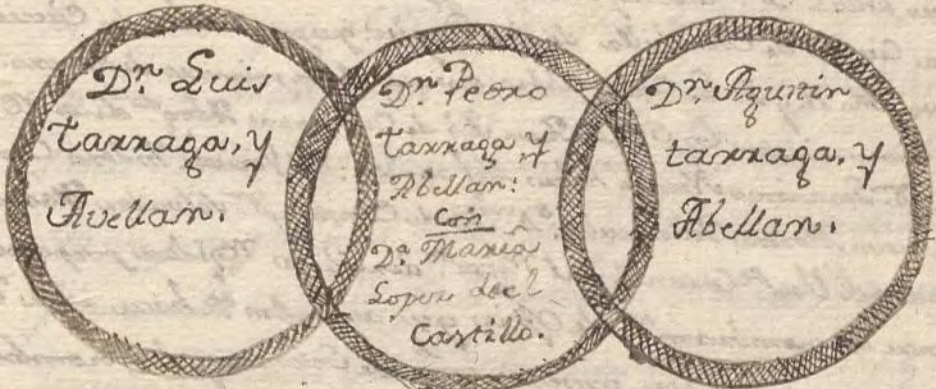 Dn. Luis
tarraga, y
Avellan.
Dn. Pedro
tarraga, y
Abellan:
Con
Da. Maria
Lopez del
Castillo.
Dn. Agustin
tarraga, y
Abellan.